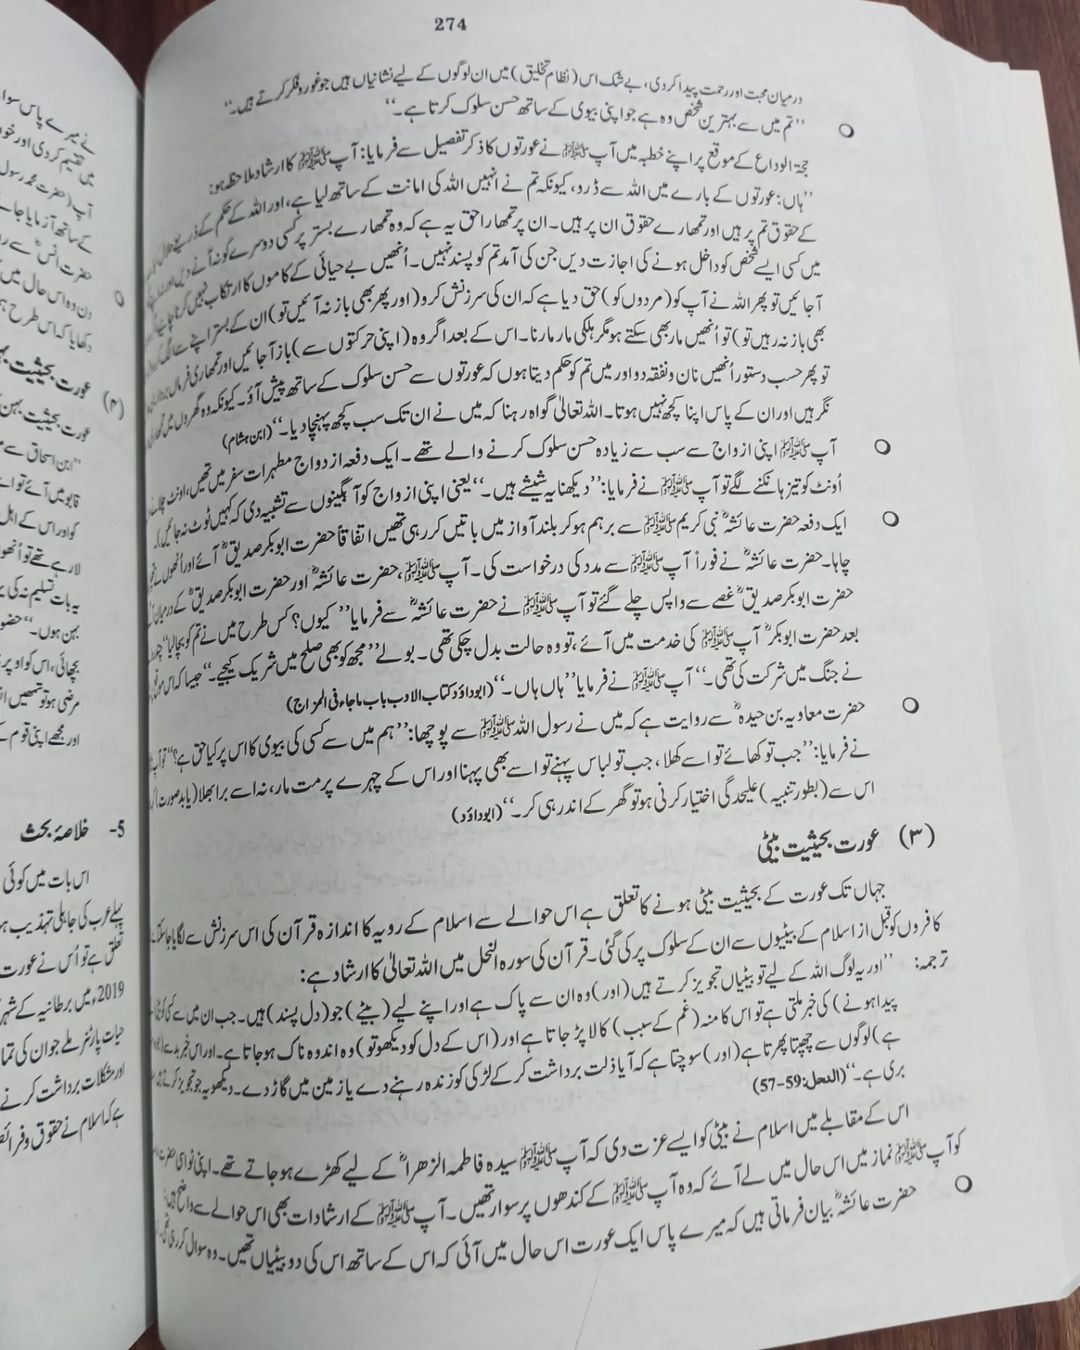 274
درمیان محبت اور رحمت پیدا کر دی، بے شک اس (نظام تخلیق) میں ان لوگوں کے لیے نشانیاں ہیں جو غور و فکر کرتے ہیں۔‘‘
’’تم میں سے بہترین شخص وہ ہے جو اپنی بیوی کے ساتھ حسن سلوک کرتا ہے۔‘‘
حجۃ الوداع کے موقع پر اپنے خطبہ میں آپ ﷺ نے عورتوں کا ذکر تفصیل سے فرمایا: آپ ﷺ کا ارشاد ملاحظہ ہو:
’’ہاں: عورتوں کے بارے میں اللہ سے ڈرو، کیونکہ تم نے انہیں اللہ کی امانت کے ساتھ لیا ہے، اور اللہ کے حکم کے ذریعے
کے حقوق تم پر ہیں اور تمھارے حقوق ان پر ہیں۔ ان پر تمھارا حق یہ ہے کہ وہ تمھارے بستر پر کسی دوسرے کو نہ آنے دیں اور
میں کسی ایسے شخص کو داخل ہونے کی اجازت دیں جن کی آمد تم کو پسند نہیں۔ اُنھیں بے حیائی کے کاموں کا ارتکاب نہیں کرنا چاہیے
آ جائیں تو پھر اللہ نے آپ کو (مردوں کو) حق دیا ہے کہ ان کی سرزنش کرو (اور پھر بھی باز نہ آئیں تو) ان کے بستر اپنے سے الگ
بھی باز نہ رہیں تو) تو اُنھیں مار بھی سکتے ہو مگر ہلکی مار مارنا۔ اس کے بعد اگر وہ (اپنی حرکتوں سے) باز آ جائیں اور تمھاری
تو پھر حسب دستور اُنھیں نان و نفقہ دو اور میں تم کو حکم دیتا ہوں کہ عورتوں سے حسن سلوک کے ساتھ پیش آؤ۔ کیونکہ وہ گھروں میں
نگر ہیں اور ان کے پاس اپنا کچھ نہیں ہوتا۔ اللہ تعالیٰ گواہ رہنا کہ میں نے ان تک سب کچھ پہنچا دیا۔‘‘ (ابن ہشام)
آپ ﷺ اپنی ازواج سے سب سے زیادہ حسن سلوک کرنے والے تھے۔ ایک دفعہ ازدواج مطہرات سفر میں تھیں، اونٹ
اُونٹ کو تیز ہانکنے لگے تو آپ ﷺ نے فرمایا: ’’دیکھنا یہ شیشے ہیں۔‘‘ یعنی اپنی ازواج کو آبگینوں سے تشبیہ دی کہ کہیں ٹوٹ نہ جائیں۔
ایک دفعہ حضرت عائشہؓ نبی کریم ﷺ سے برہم ہو کر بلند آواز میں باتیں کر رہی تھیں اتفاقاً حضرت ابوبکر صدیقؓ آئے اور اُنھوں نے
چاہا۔ حضرت عائشہؓ نے فوراً آپ ﷺ سے مدد کی درخواست کی۔ آپ ﷺ، حضرت عائشہؓ اور حضرت ابوبکر صدیقؓ کے درمیان
حضرت ابوبکر صدیقؓ غصے سے واپس چلے گئے تو آپ ﷺ نے حضرت عائشہؓ سے فرمایا ’’کیوں؟ کس طرح میں نے تم کو بچا لیا‘‘
بعد حضرت ابوبکرؓ آپ ﷺ کی خدمت میں آئے، تو وہ حالت بدل چکی تھی۔ بولے ’’مجھ کو بھی صلح میں شریک کیجیے۔‘‘ جیسا کہ
نے جنگ میں شرکت کی تھی۔‘‘ آپ ﷺ نے فرمایا ’’ہاں ہاں۔‘‘ (ابوداؤد کتاب الادب باب ماجاء فی المزاح)
حضرت معاویہ بن حیدہؓ سے روایت ہے کہ میں نے رسول اللہ ﷺ سے پوچھا: ’’ہم میں سے کسی کی بیوی کا اس پر کیا حق ہے؟‘‘ تو آپ
نے فرمایا: ’’جب تو کھائے تو اسے کھلا، جب تو لباس پہنے تو اسے بھی پہنا اور اس کے چہرے پر مت مار، نہ اسے برا بھلا (یا بدصورت)
اس سے (بطور تنبیہ) علیحدگی اختیار کرنی ہو تو گھر کے اندر ہی کر۔‘‘ (ابوداؤد)
(۳) عورت بحیثیت بیٹی
جہاں تک عورت کے بحیثیت بیٹی ہونے کا تعلق ہے اس حوالے سے اسلام کے رویہ کا اندازہ قرآن کی اس سرزنش سے لگایا جا
کافروں کو قبل از اسلام کے بیٹیوں سے ان کے سلوک پر کی گئی۔ قرآن کی سورہ النحل میں اللہ تعالیٰ کا ارشاد ہے:
ترجمہ: ’’اور یہ لوگ اللہ کے لیے تو بیٹیاں تجویز کرتے ہیں (اور) وہ ان سے پاک ہے اور اپنے لیے (بیٹے) جو (دل پسند) ہیں۔ جب ان میں سے کسی کو
پیدا ہونے) کی خبر ملتی ہے تو اس کا منہ (غم کے سبب) کالا پڑ جاتا ہے اور (اس کے دل کو دیکھو تو) وہ اندوہ ناک ہو جاتا ہے۔ اور اس خبر بد سے
ہے) لوگوں سے چھپتا پھرتا ہے (اور) سوچتا ہے کہ آیا ذلت برداشت کر کے لڑکی کو زندہ رہنے دے یا زمین میں گاڑ دے۔ دیکھو یہ جو تجویز کرتے
بری ہے۔‘‘ (النحل: 59-57)
اس کے مقابلے میں اسلام نے بیٹی کو ایسے عزت دی کہ آپ ﷺ سیدہ فاطمہ الزھراؓ کے لیے کھڑے ہو جاتے تھے۔ اپنی نواسی
کو آپ ﷺ نماز میں اس حال میں لے آئے کہ وہ آپ ﷺ کے کندھوں پر سوار تھیں۔ آپ ﷺ کے ارشادات بھی اس حوالے سے واضح ہیں
حضرت عائشہؓ بیان فرماتی ہیں کہ میرے پاس ایک عورت اس حال میں آئی کہ اس کے ساتھ اس کی دو بیٹیاں تھیں۔ وہ سوال کر رہی
نے میرے پاس سوا
میں تقسیم کر دی اور خود
آپ (حضرت محمد رسول
کے ساتھ آزمایا جائے
حضرت انسؓ سے
دن وہ اس حال میں
دکھایا کہ اس طرح
(۴) عورت بحیثیت بہن
عورت بحیثیت بہن
’’ابن اسحاق سے
قابو میں آئے تو
کو اور اس کے اہل
لا رہے تھے تو اُنھوں
یہ بات تسلیم نہ کی
بہن ہوں۔‘‘ حضور
بچھائی، اس کو اوپر
مرضی ہو تو تمھیں
اور مجھے اپنی قوم
5- خلاصۂ بحث
اس بات میں کوئی
پہلے عرب کی جاہلی تہذیب
تعلق ہے تو اُس نے عورت
2019ء میں برطانیہ کے شہر
حیات پارٹنر ملے جو ان کی
اور مشکلات برداشت کرنے
ہے کہ اسلام نے حقوق و فرائض